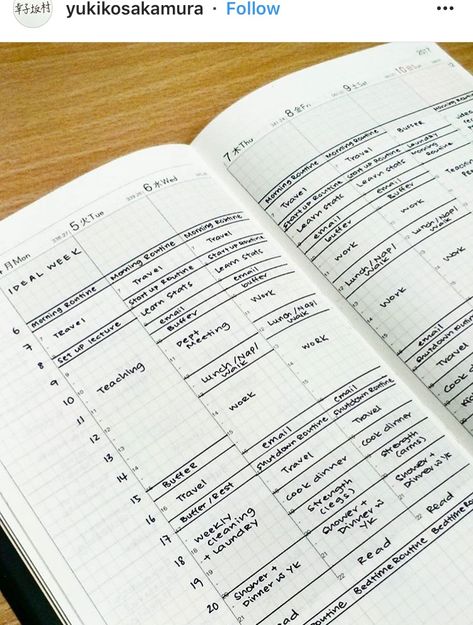 yukikosakamura · Follow
2017
月Mon
5火Tue
6水Wed
7木Thu
8金Fri
9土Sat
10日Sun
6
7
8
9
10
11
12
13
14
15
16
17
18
19
20
IDEAL WEEK
Morning Routine
Travel
Set up lecture
Teaching
Buffer
Travel
Buffer/Rest
Weekly
cleaning
+ laundry
Shower +
Dinner w YK
Morning Routine
Travel
Start up Routine
learn stats
email
Buffer
Dept
Meeting
Lunch/Nap/
Walk
work
email
shutdown Routine
Travel
cook dinner
strength
(legs)
shower +
Dinner w
YK
Read
Morning Routine
Travel
Start up Routine
Learn stats
email
buffer
Work
Lunch/Nap/
walk
work
email
shutdown Routine
Travel
cook dinner
strength
(arms)
shower +
Dinner w YK
Read
Bedtime Routine
Morning Routine
Travel
Start up Routine
Learn stats
email
buffer
work
Lunch/Nap/
walk
work
email
shutdown Routine
Travel
Morning Routine
Travel
start up Routine
Learn stats
email
Buffer
work
Lunch/Nap/
Walk
work
Buffer
Laundry
Morning
Routine